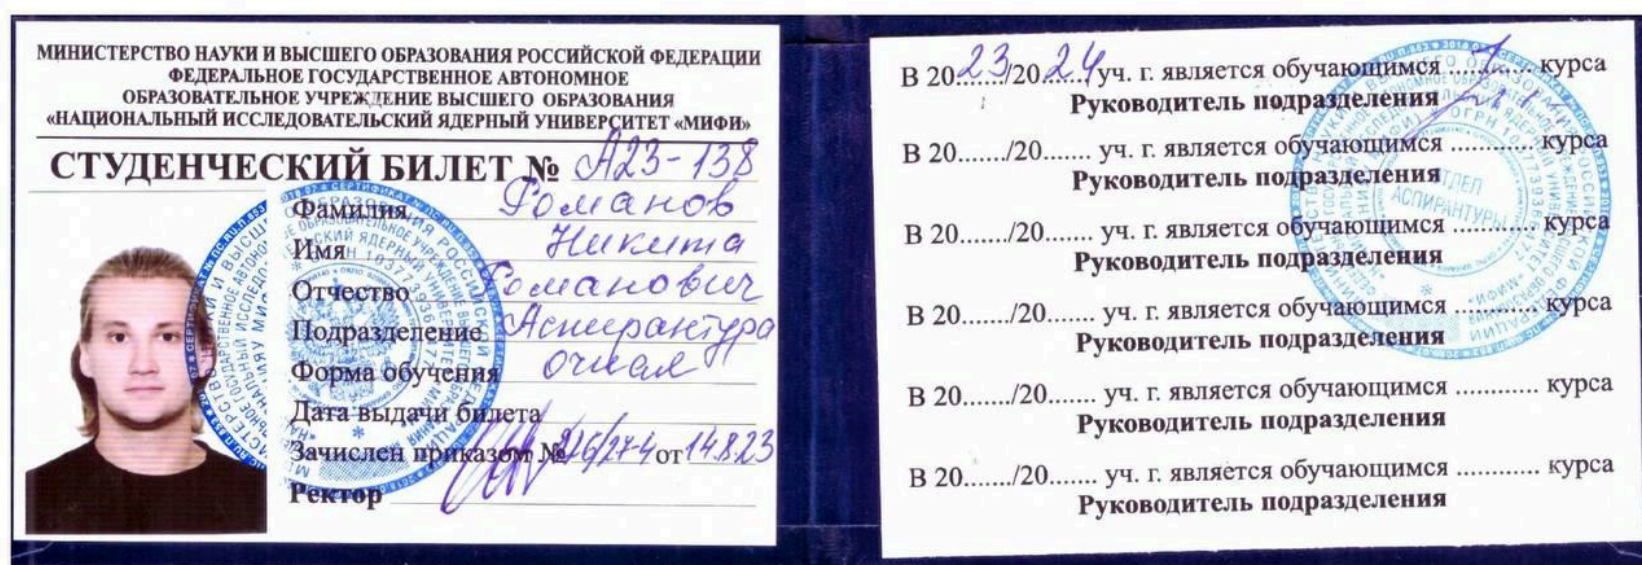 МИНИСТЕРСТВО НАУКИ И ВЫСШЕГО ОБРАЗОВАНИЯ РОССИЙСКОЙ ФЕДЕРАЦИИ
ФЕДЕРАЛЬНОЕ ГОСУДАРСТВЕННОЕ АВТОНОМНОЕ
ОБРАЗОВАТЕЛЬНОЕ УЧРЕЖДЕНИЕ ВЫСШЕГО ОБРАЗОВАНИЯ
«НАЦИОНАЛЬНЫЙ ИССЛЕДОВАТЕЛЬСКИЙ ЯДЕРНЫЙ УНИВЕРСИТЕТ «МИФИ»
СТУДЕНЧЕСКИЙ БИЛЕТ № А23-138
Фамилия Романов
Имя Никита
Отчество Романович
Подразделение Аспирантура
Форма обучения очная
Дата выдачи билета
Зачислен приказом № от 14.8.23
Ректор
В 20 23 /20 24 уч. г. является обучающимся 1 курса
Руководитель подразделения
В 20......./20....... уч. г. является обучающимся ............ курса
Руководитель подразделения
В 20......./20....... уч. г. является обучающимся ............ курса
Руководитель подразделения
В 20......./20....... уч. г. является обучающимся ............ курса
Руководитель подразделения
В 20......./20....... уч. г. является обучающимся ............ курса
Руководитель подразделения
В 20......./20....... уч. г. является обучающимся ............ курса
Руководитель подразделения
ОТДЕЛ
АСПИРАНТУРЫ